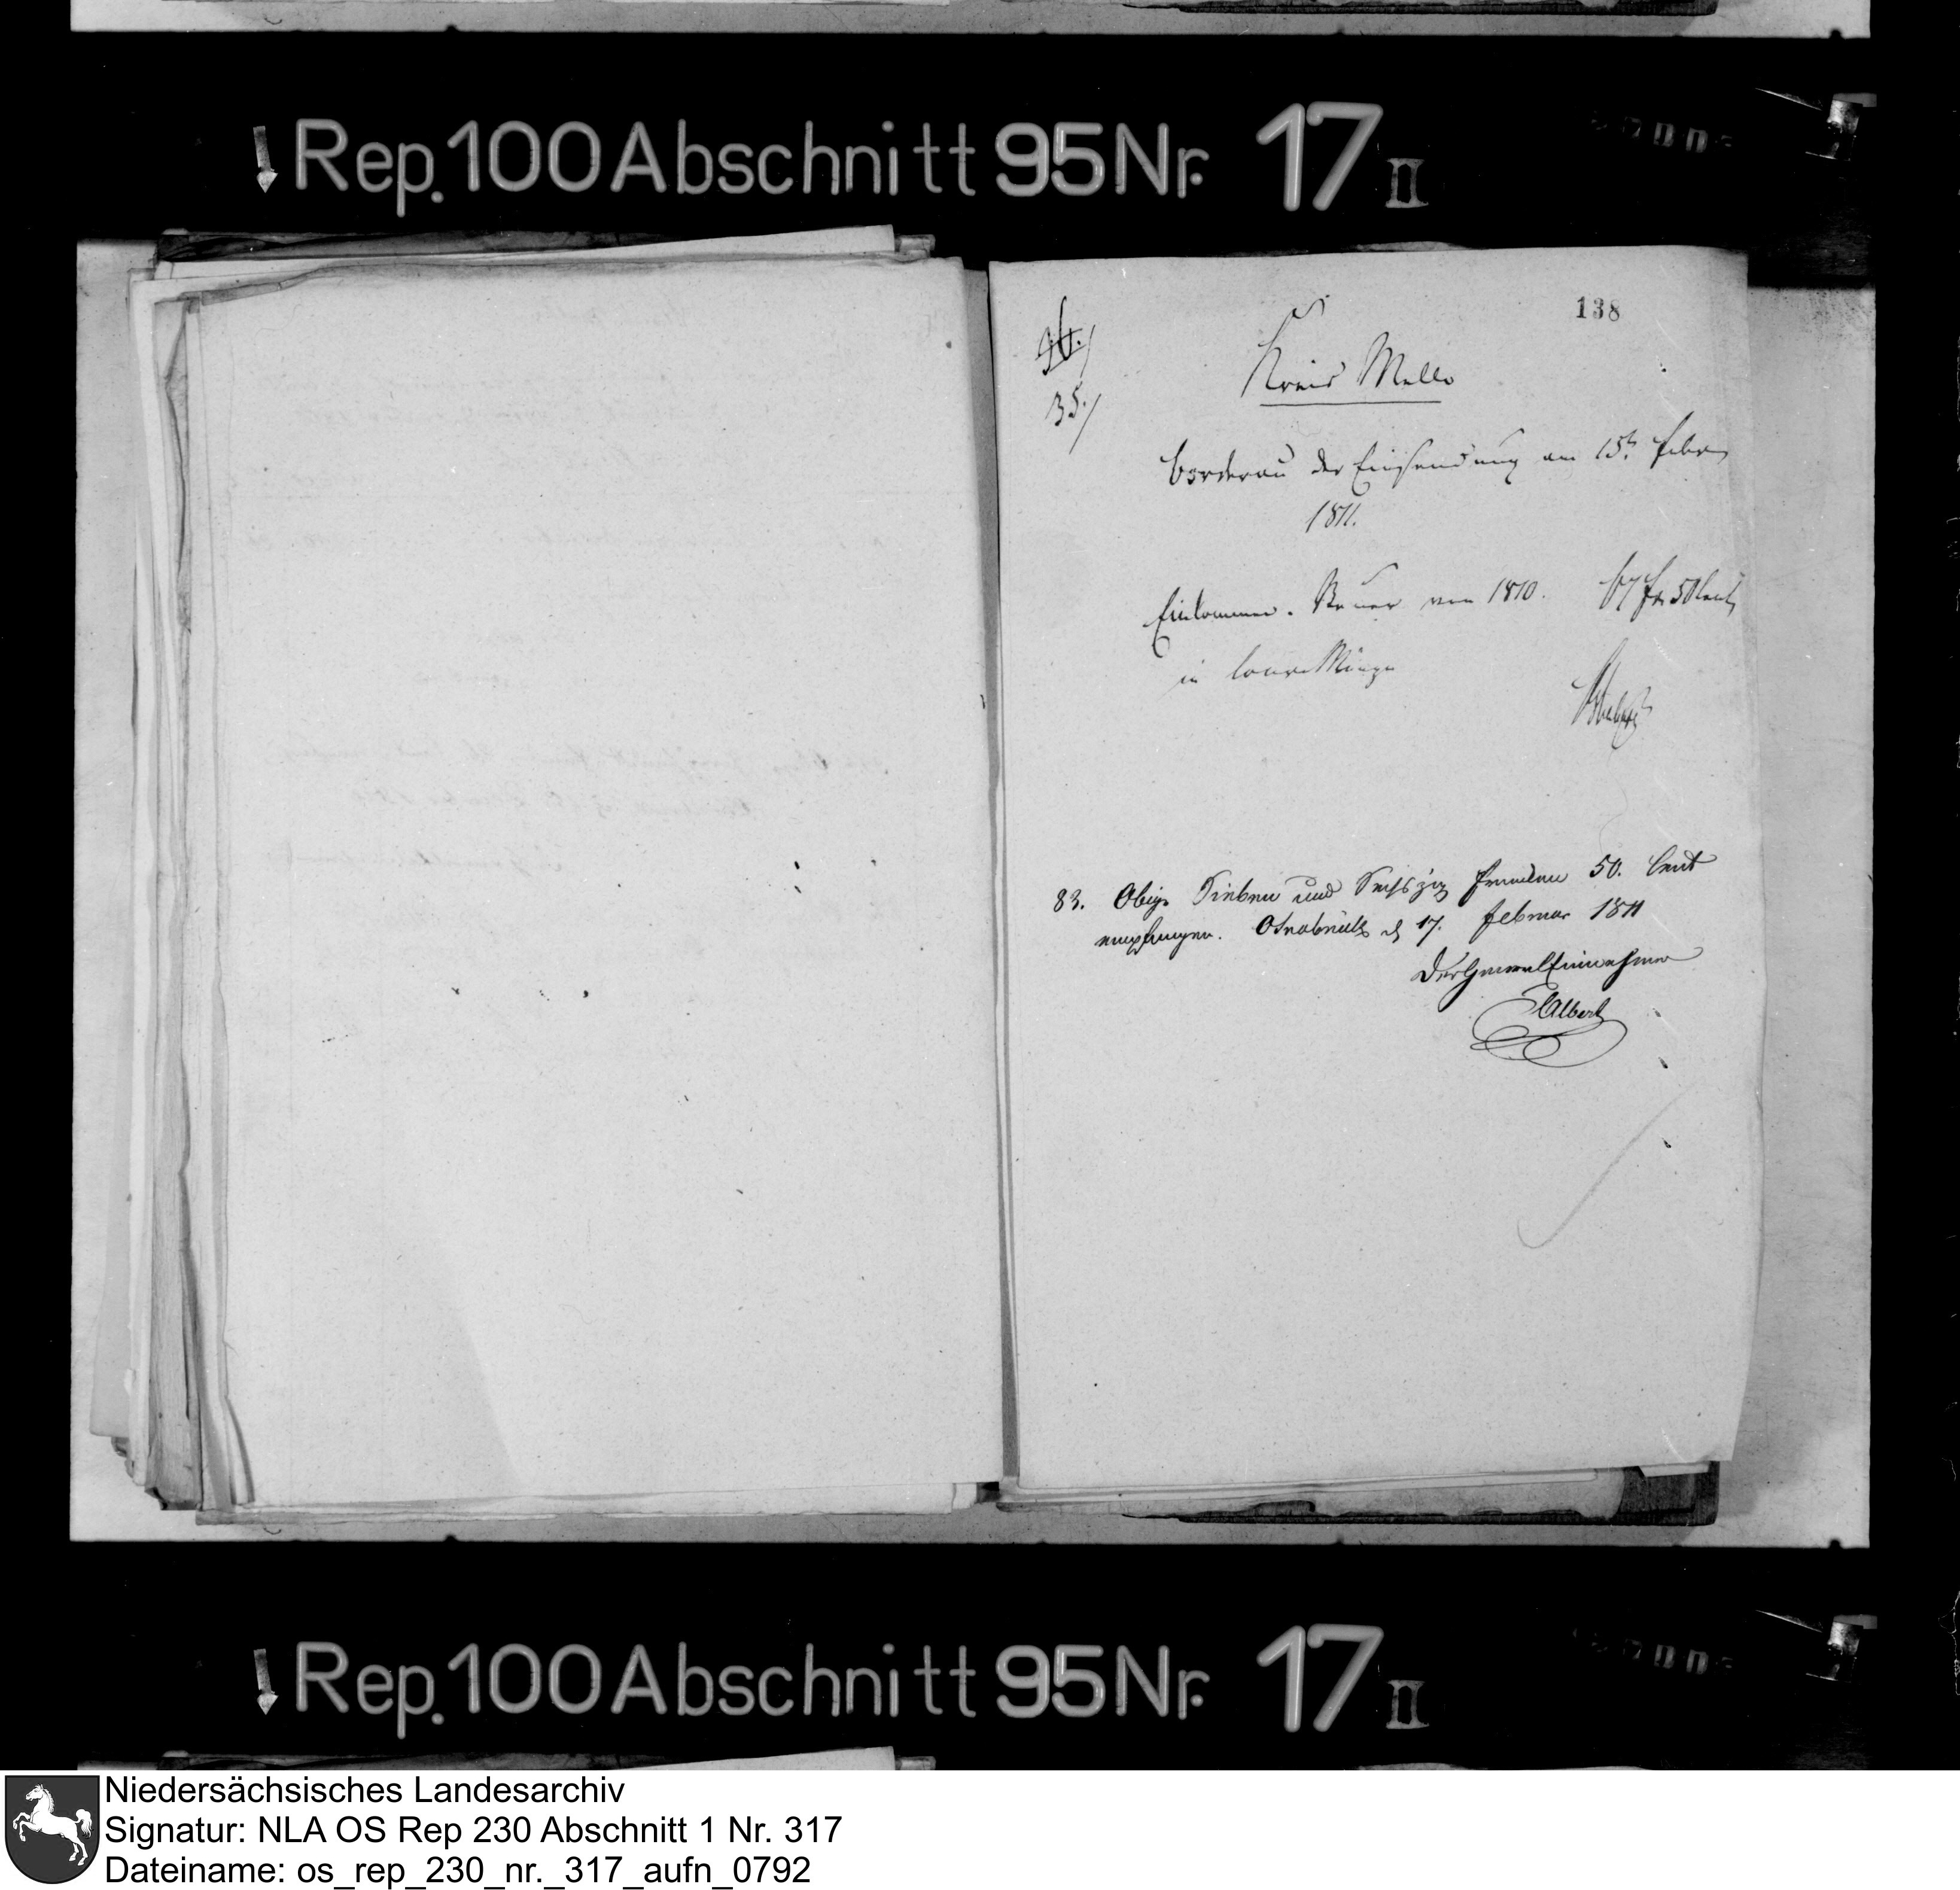 Rep. 100 Abschnitt 95 Nr. 17 II
138
34./
35./
Kreis Melle
Borderau der Einsendung am 15t Febr
1811.
Einkommen-Steuer von 1810. 67 fr 50 Cent
in Cour. Münze
83. Obige Sieben und Sechszig Franken 50. Cent
empfangen. Osnabrück d 17. Februar 1811
Der General Einnehmer
Albert
Rep. 100 Abschnitt 95 Nr. 17 II
Niedersächsisches Landesarchiv
Signatur: NLA OS Rep 230 Abschnitt 1 Nr. 317
Dateiname: os_rep_230_nr._317_aufn_0792